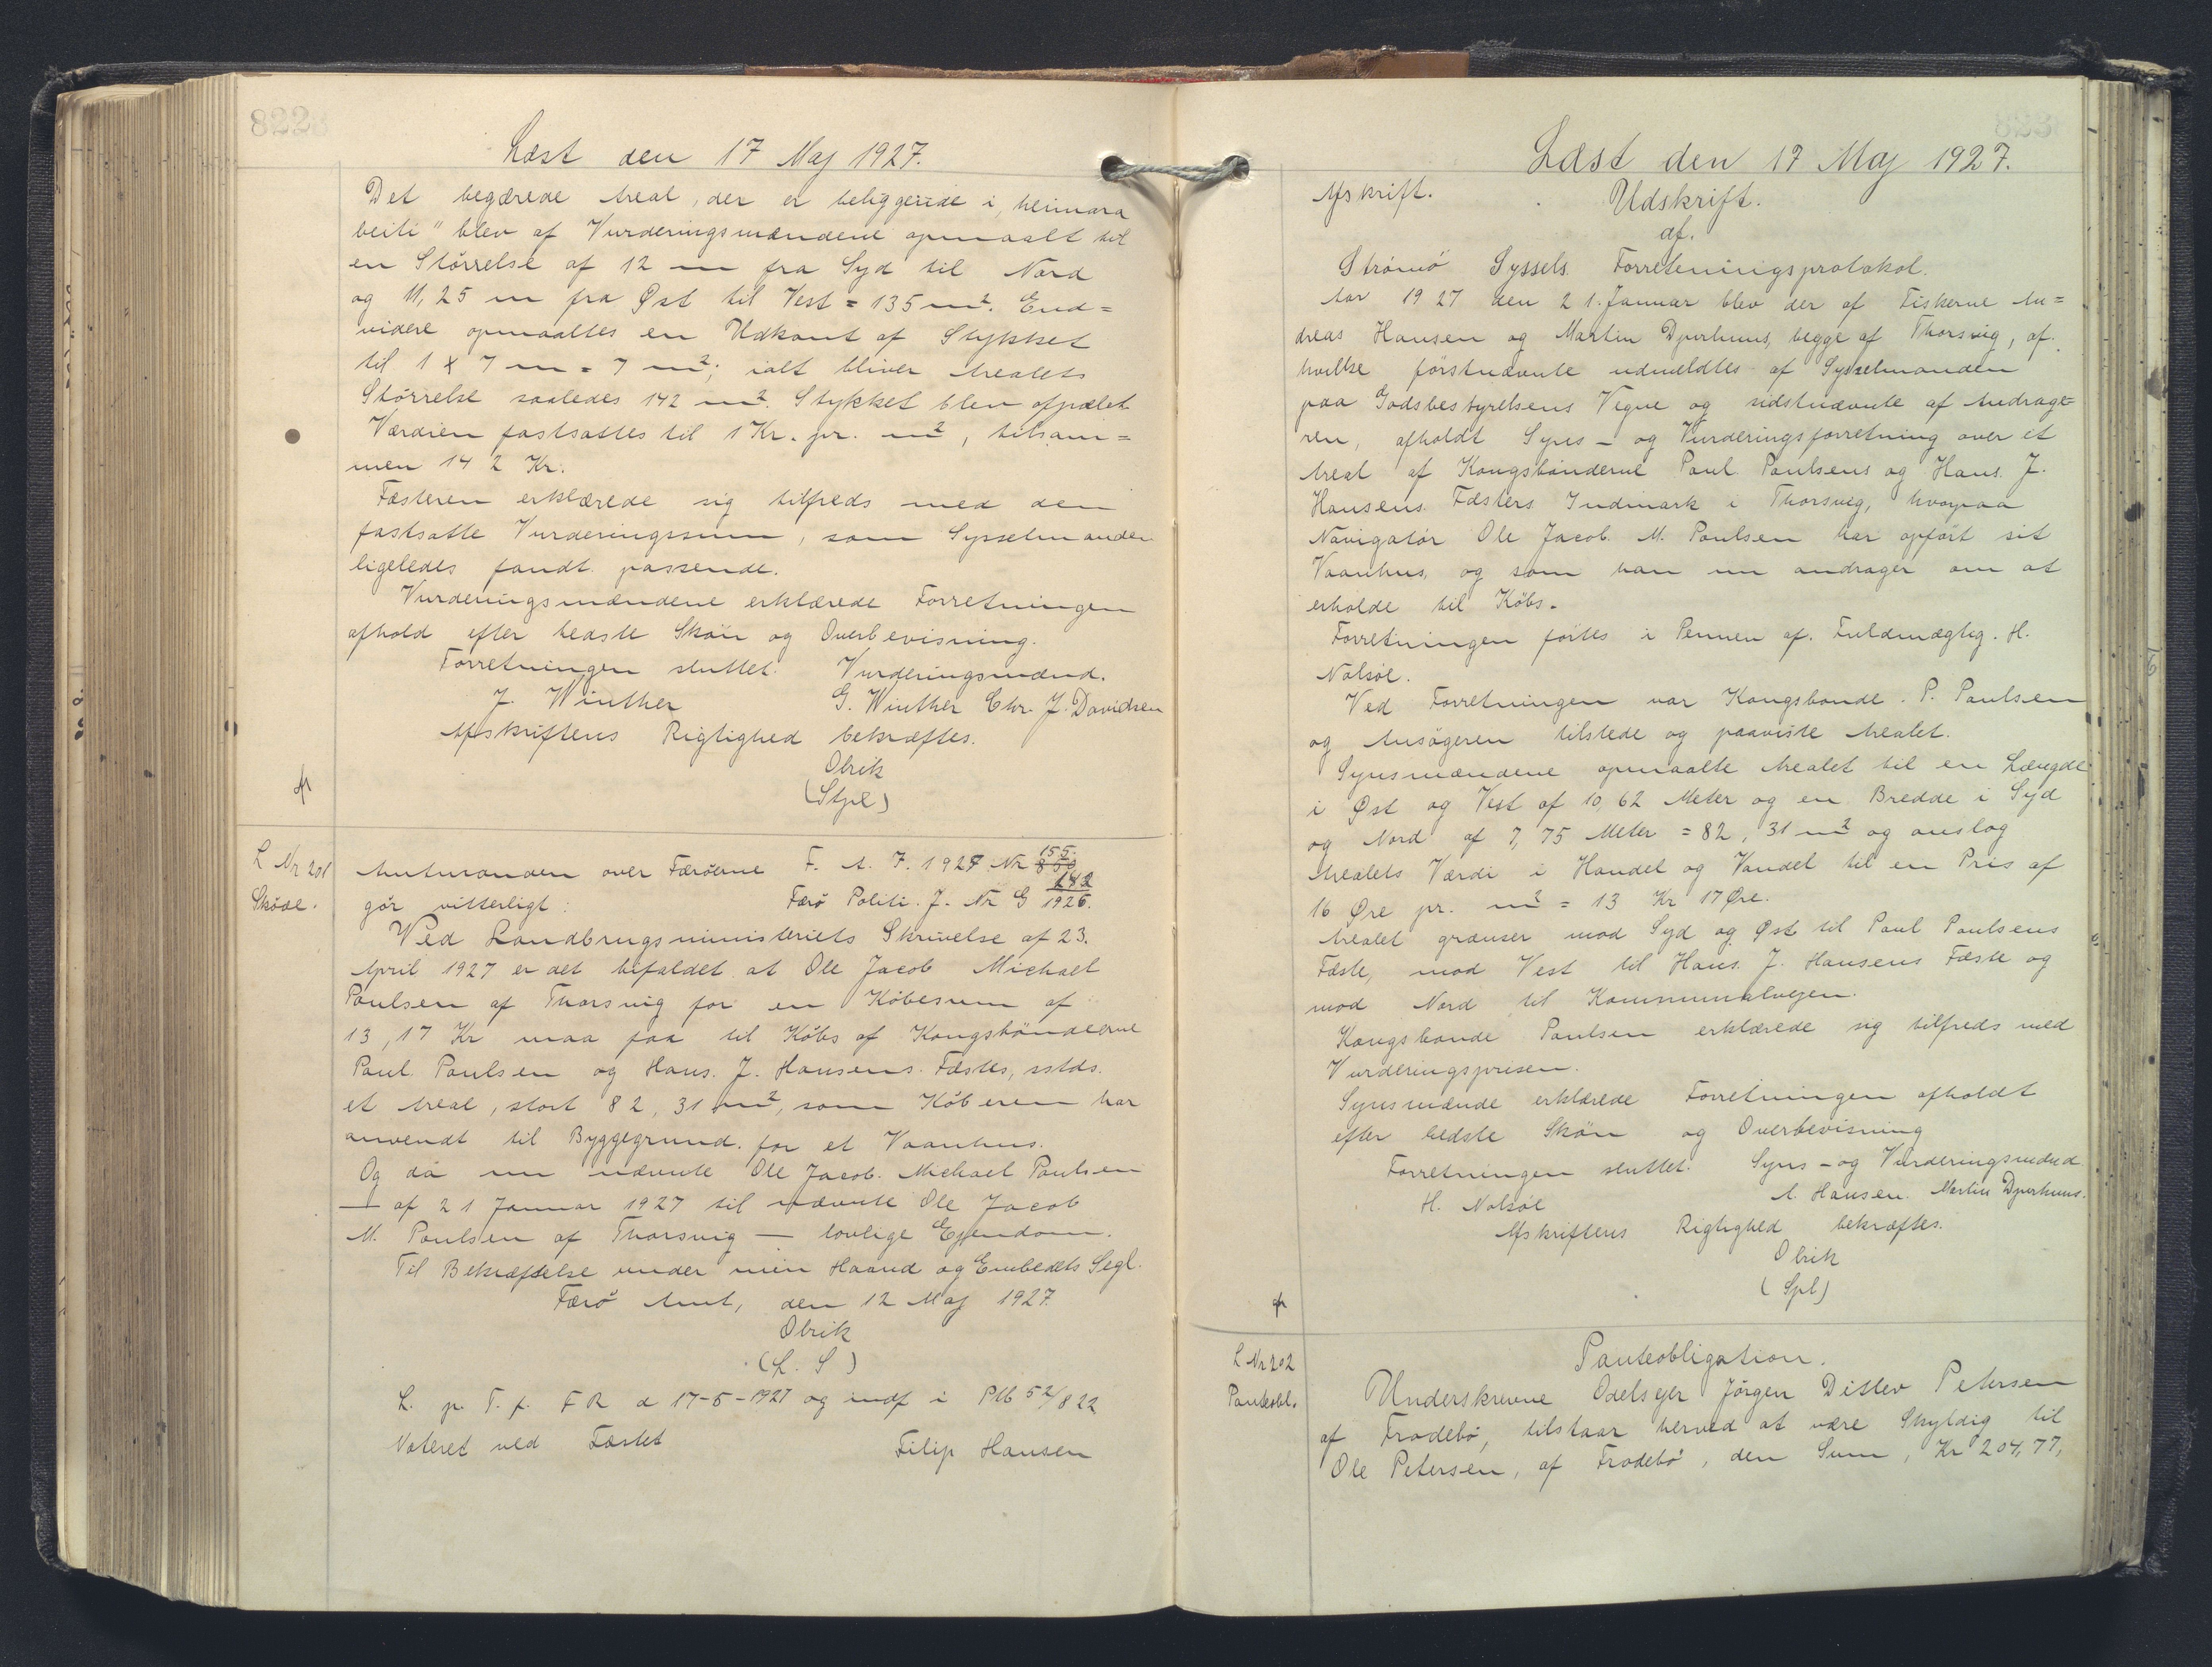 822
Læst den 17 Maj 1927.
Det begærede Areal, der er beliggende i "heimara
beiti" blev af Vurderingsmændene opmaalt til
en Størrelse af 12 m fra Syd til Nord
og 11,25 m fra Øst til Vest = 135 m². End=
videre opmaaltes en Udkant af Stykket
til 1 x 7 m = 7 m²; ialt bliver Arealets
Størrelse saaledes 142 m². Stykket blev afpælet
Værdien fastsattes til 1 Kr. pr. m², tilsam=
men 142 Kr.
Fæsteren erklærede sig tilfreds med den
fastsatte Vurderingssum, som Sysselmanden
ligeledes fandt passende.
Vurderingsmændene erklærede Forretningen
afhold efter bedste Skön og Overbevisning.
Forretningen sluttet. Vurderingsmænd.
J. Winther G. Winther Chr. J. Davidsen
Afskriftens Rigtighed bekræftes.
Olrik
(Stpl)
L Nr 201
Sköde.
Amtmanden over Færöerne F. A. J. 1927 Nr 850 155.
gör vitterligt: Færö Politi. J. Nr G 142/1926.
Ved Landbrugsministeriets Skrivelse af 23.
April 1927 er det bifaldet at Ole Jacob Michael
Poulsen af Thorsvig for en Köbesum af
13,17 Kr maa faa til Köbs af Kongsbönderne
Paul Paulsen og Hans. J. Hansens Fæstes, sstds.
et Areal, stort 82,31 m², som Köberen har
anvendt til Byggegrund for et Vaanhus.
Og da nu nævnte Ole Jacob. Michael Paulsen
— af 21 Januar 1927 til nævnte Ole Jacob
M. Poulsen af Thorsvig — lovlige Ejendom.
Til Bekræftelse under min Haand og Embedets Segl.
Færö Amt, den 12 Maj 1927
Olrik
(L. S)
L. p. T. f. F R d 17-5-1927 og indf i Ptb 52/822
Noteret ved Fæstet Filip Hansen
823
Læst den 17 Maj 1927.
Afskrift. Udskrift.
af.
Strömö Syssels Forretningsprotokol.
Aar 1927 den 21. Januar blev der af Fiskerne An=
dreas Hansen og Martin Djurhuus, begge af Thorsvig, af.
hvilke førstnævnte udmeldtes af Sysselmanden
paa Godsbestyrelsens Vegne og sidstnævnte af Andrage=
ren, afholdt Syns- og Vurderingsforretning over et
Areal af Kongsbönderne Paul Paulsens og Hans. J.
Hansens Fæsters Indmark i Thorsvig, hvorpaa
Navigatör Ole Jacob. M. Poulsen har opført sit
Vaanhus, og som han nu andrager om at
erholde til Köbs.
Forretningen førtes i Pennen af. Fuldmægtig. H.
Nolsöe.
Ved Forretningen var Kongsbonde. P. Paulsen
og Ansögeren tilstede og paaviste Arealet.
Synsmændene opmaalte Arealet til en Længde
i Øst og Vest af 10,62 Meter og en Bredde i Syd
og Nord af 7,75 Meter = 82,31 m² og anslog
Arealets Værdi i Handel og Vandel til en Pris af
16 Øre pr. m² = 13 Kr 17 Øre.
Arealet grænser mod Syd og Øst til Paul Paulsens
Fæste, mod Vest til Hans. J. Hansens Fæste og
mod Nord til Kommunalvejen.
Kongsbonde Paulsen erklærede sig tilfreds med
Vurderingsprisen.
Synsmænde erklærede Forretningen afholdt
efter bedste Skön og Overbevisning
Forretningen sluttet. Syns- og Vurderingsmænd
H. Nolsöe A. Hansen. Martin Djurhuus.
Afskriftens Rigtighed bekræftes.
Olrik
(Spl)
L Nr 202
Panteobl.
Panteobligation.
Underskrevne Odelsejer Jörgen Ditlev Petersen
af Frodebö, tilstaar herved at være Skyldig til
Ole Petersen, af Frodebö, den Sum, Kr 204,77,